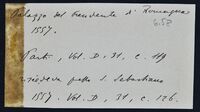 Palazzo del Presidente di Romagna
6.52
1557.
Parti, Vol. D, 31, c. 119
presso S. Sebastiano
1557. Vol. D, 31, c. 126.